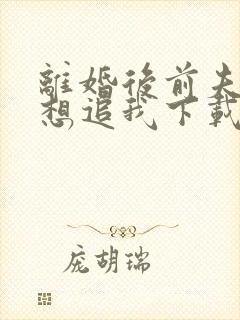 離婚後前夫
想追我下載
庞胡瑞